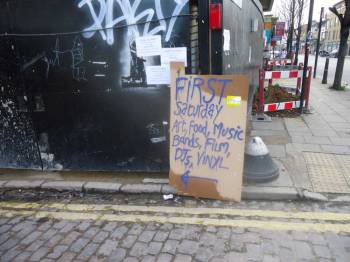 FIRST
Saturday
Art, Food, Music
Bands, Film,
DJs, VINYL